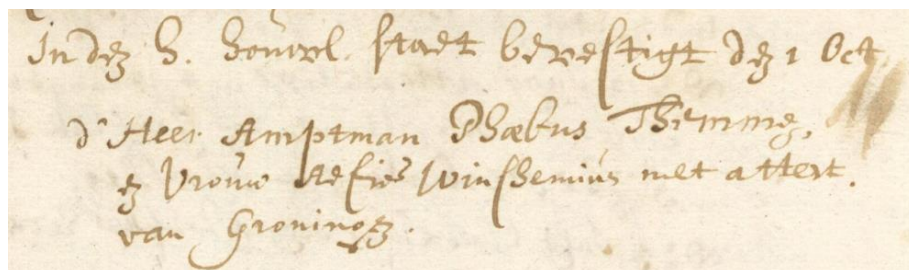 In den h. houwl. staet bevestigt den 1 Oct.
d' Heer Amptman Phœbus Themmen,
en Vrouw Aefies Winshemius met attest.
van Groningen.